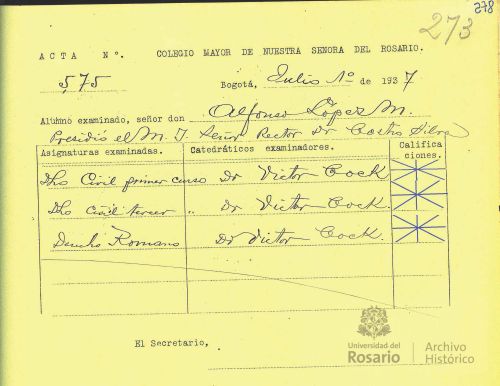 278
273
ACTA Nº. COLEGIO MAYOR DE NUESTRA SEÑORA DEL ROSARIO.
575 Bogotá, Julio 1º de 1937
Alumno examinado, señor don Alfonso López M.
Presidió el M. I. Señor Rector Dr Castro Silva
Asignaturas examinadas. Catedráticos examinadores. Califica
ciones.
Dho Civil primer curso Dr Victor Cock
Dho Civil tercer " Dr Victor Cock.
Derecho Romano Dr Victor Cock.
El Secretario,
Universidad del
Rosario
Archivo
Histórico